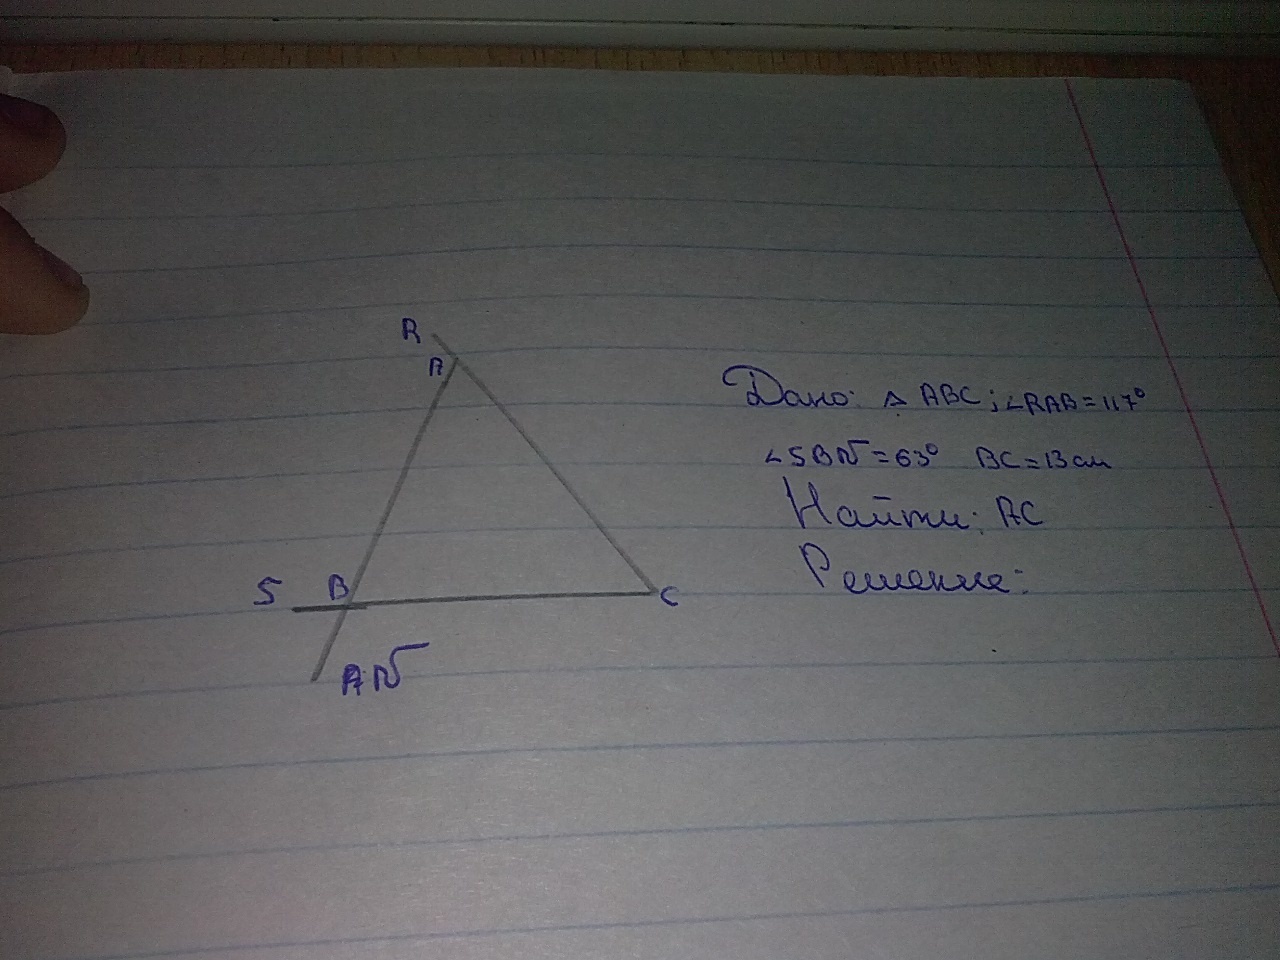 R
A
Дано: △ ABC; ∠RAB = 117°
∠SBN = 63° BC = 13 см
Найти: AC
Решение:
S B C
N